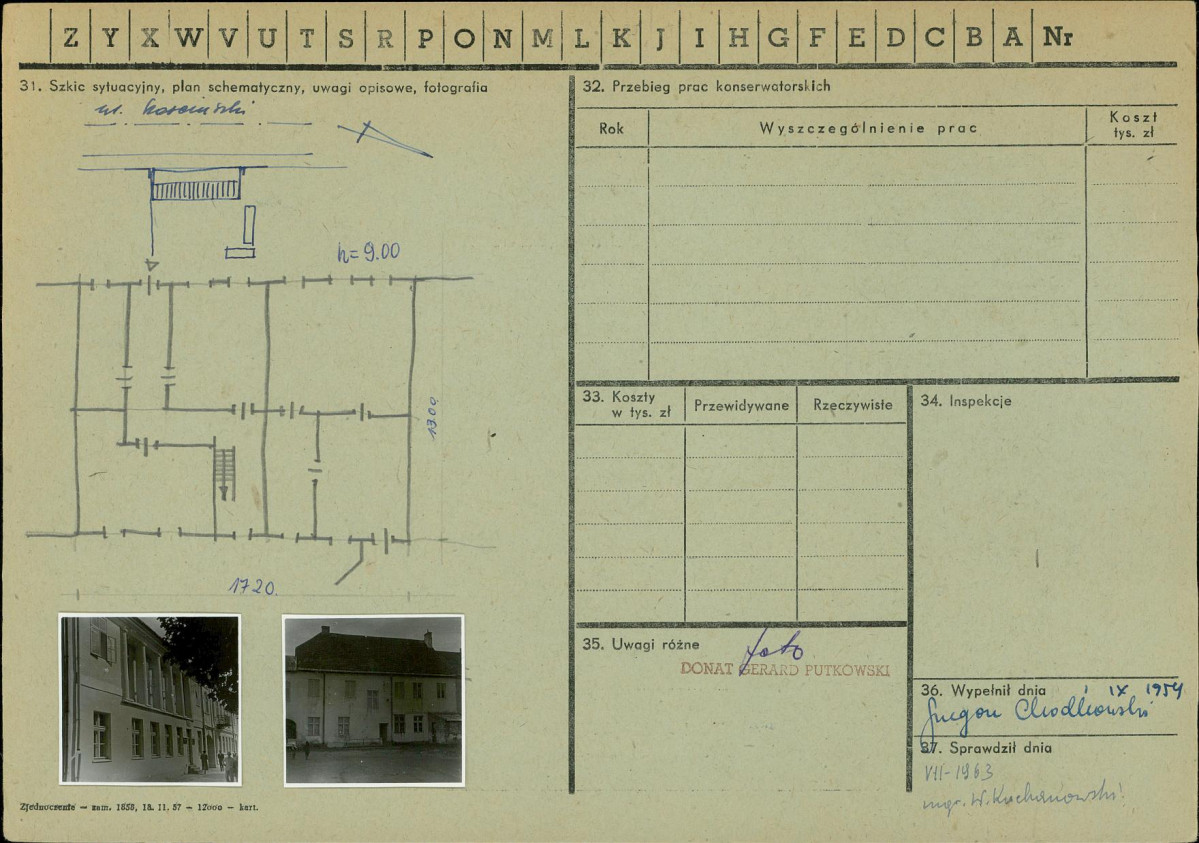 Z Y X W V U T S R P O N M L K J I H G F E D C B A Nr
31. Szkic sytuacyjny, plan schematyczny, uwagi opisowe, fotografia
ul.
h=9.00
1300
1720.
Zjednoczenie — zam. 1858, 18. 11. 57 — 12000 — kart.
32. Przebieg prac konserwatorskich
Rok Wyszczególnienie prac Koszt tys. zł
33. Koszty w tys. zł Przewidywane Rzeczywiste
34. Inspekcje
35. Uwagi różne
foto
DONAT GERARD PUTKOWSKI
36. Wypełnił dnia IX 1959
Chodkowski
37. Sprawdził dnia
VII-1963
mgr. W. Kochanowski